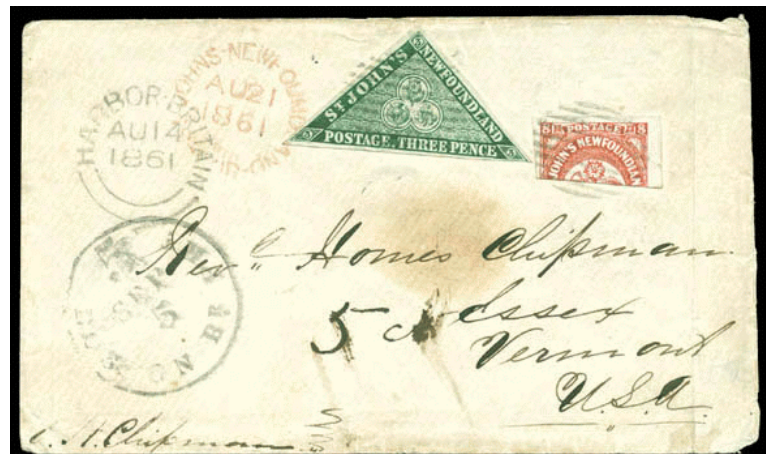 HARBOR·BRITAIN
AU14
1861
JOHNS-NEWFOUNDLAND
AU21
1861
ST JOHN'S
NEWFOUNDLAND
POSTAGE. THREE PENCE
3
3
3
8
POSTAGE
8
JOHN'S NEWFOUNDLAN
Homes Chipman
5
Essex
Vermont
U.S.A.
Chipman